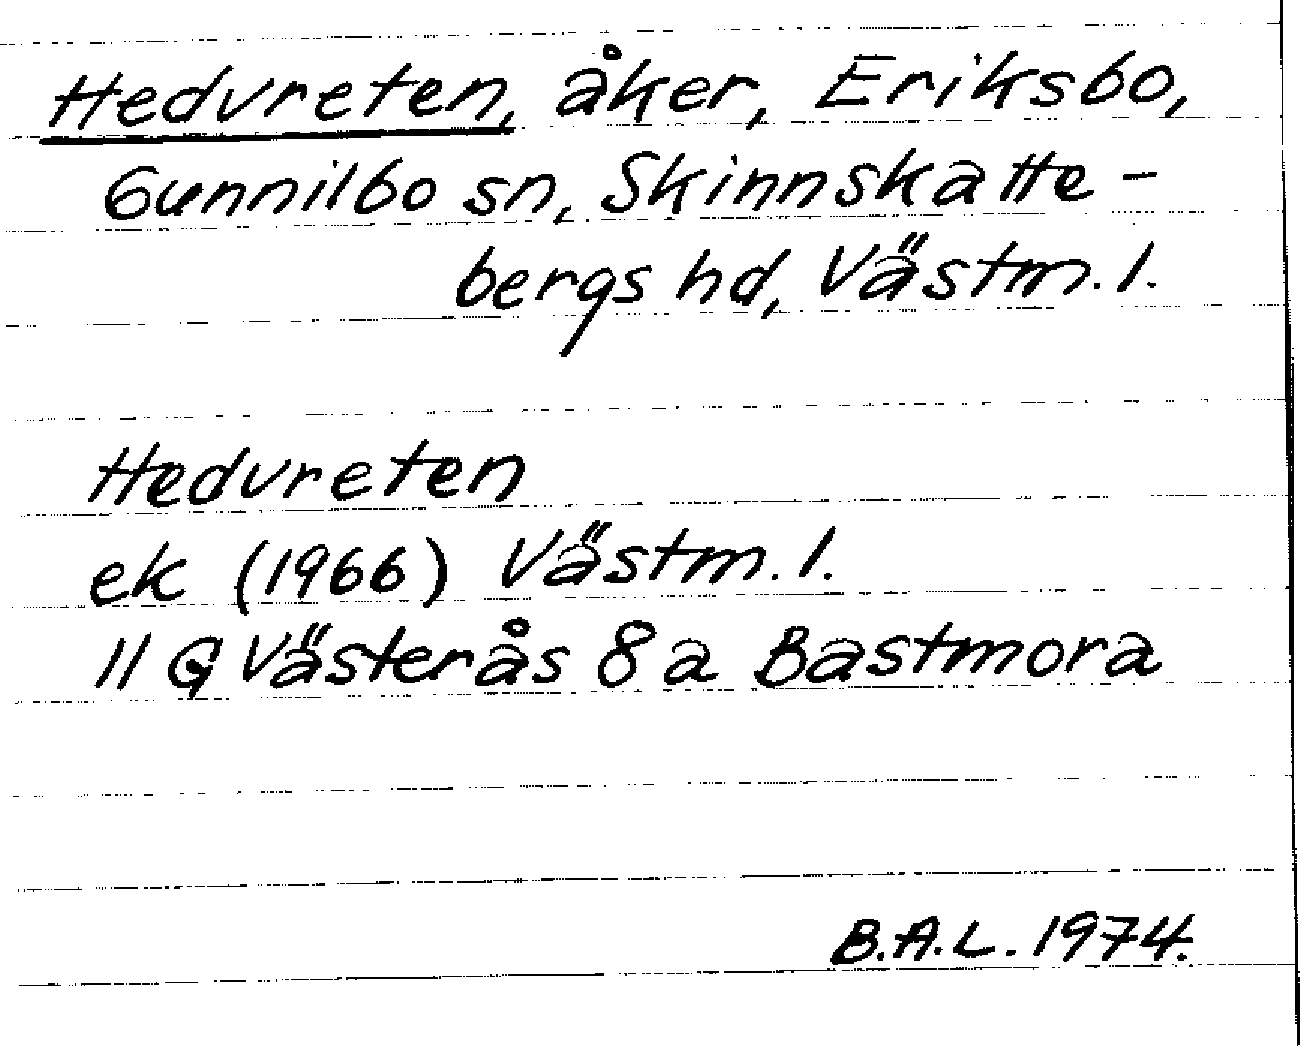 Hedvreten, åker, Eriksbo,
Gunnilbo sn, Skinnskatte-
bergs hd, Västm. l.
Hedvreten
ek (1966) Västm. l.
11 G Västerås 8 a Bastmora
B.A.L. 1974.